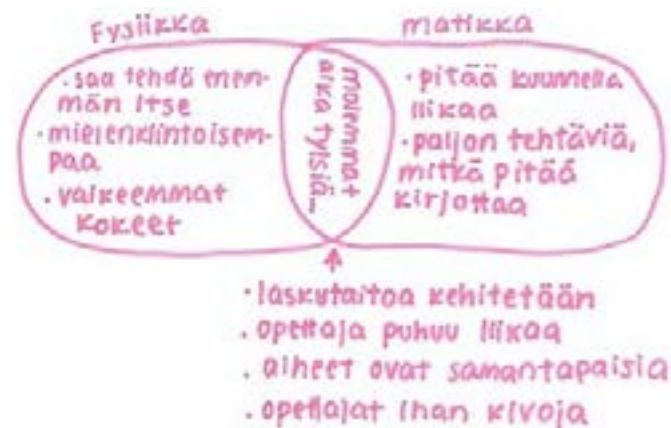 Fysiikka
matikka
• saa tehdä enem-
män itse
• mielenkiintoisem-
paa
• vaikeemmat
kokeet
molemmat
aika tylsiä...
• pitää kuunnella
liikaa
• paljon tehtäviä,
mitkä pitää
kirjottaa
• laskutaitoa kehitetään
• opettaja puhuu liikaa
• aiheet ovat samantapaisia
• opettajat ihan kivoja